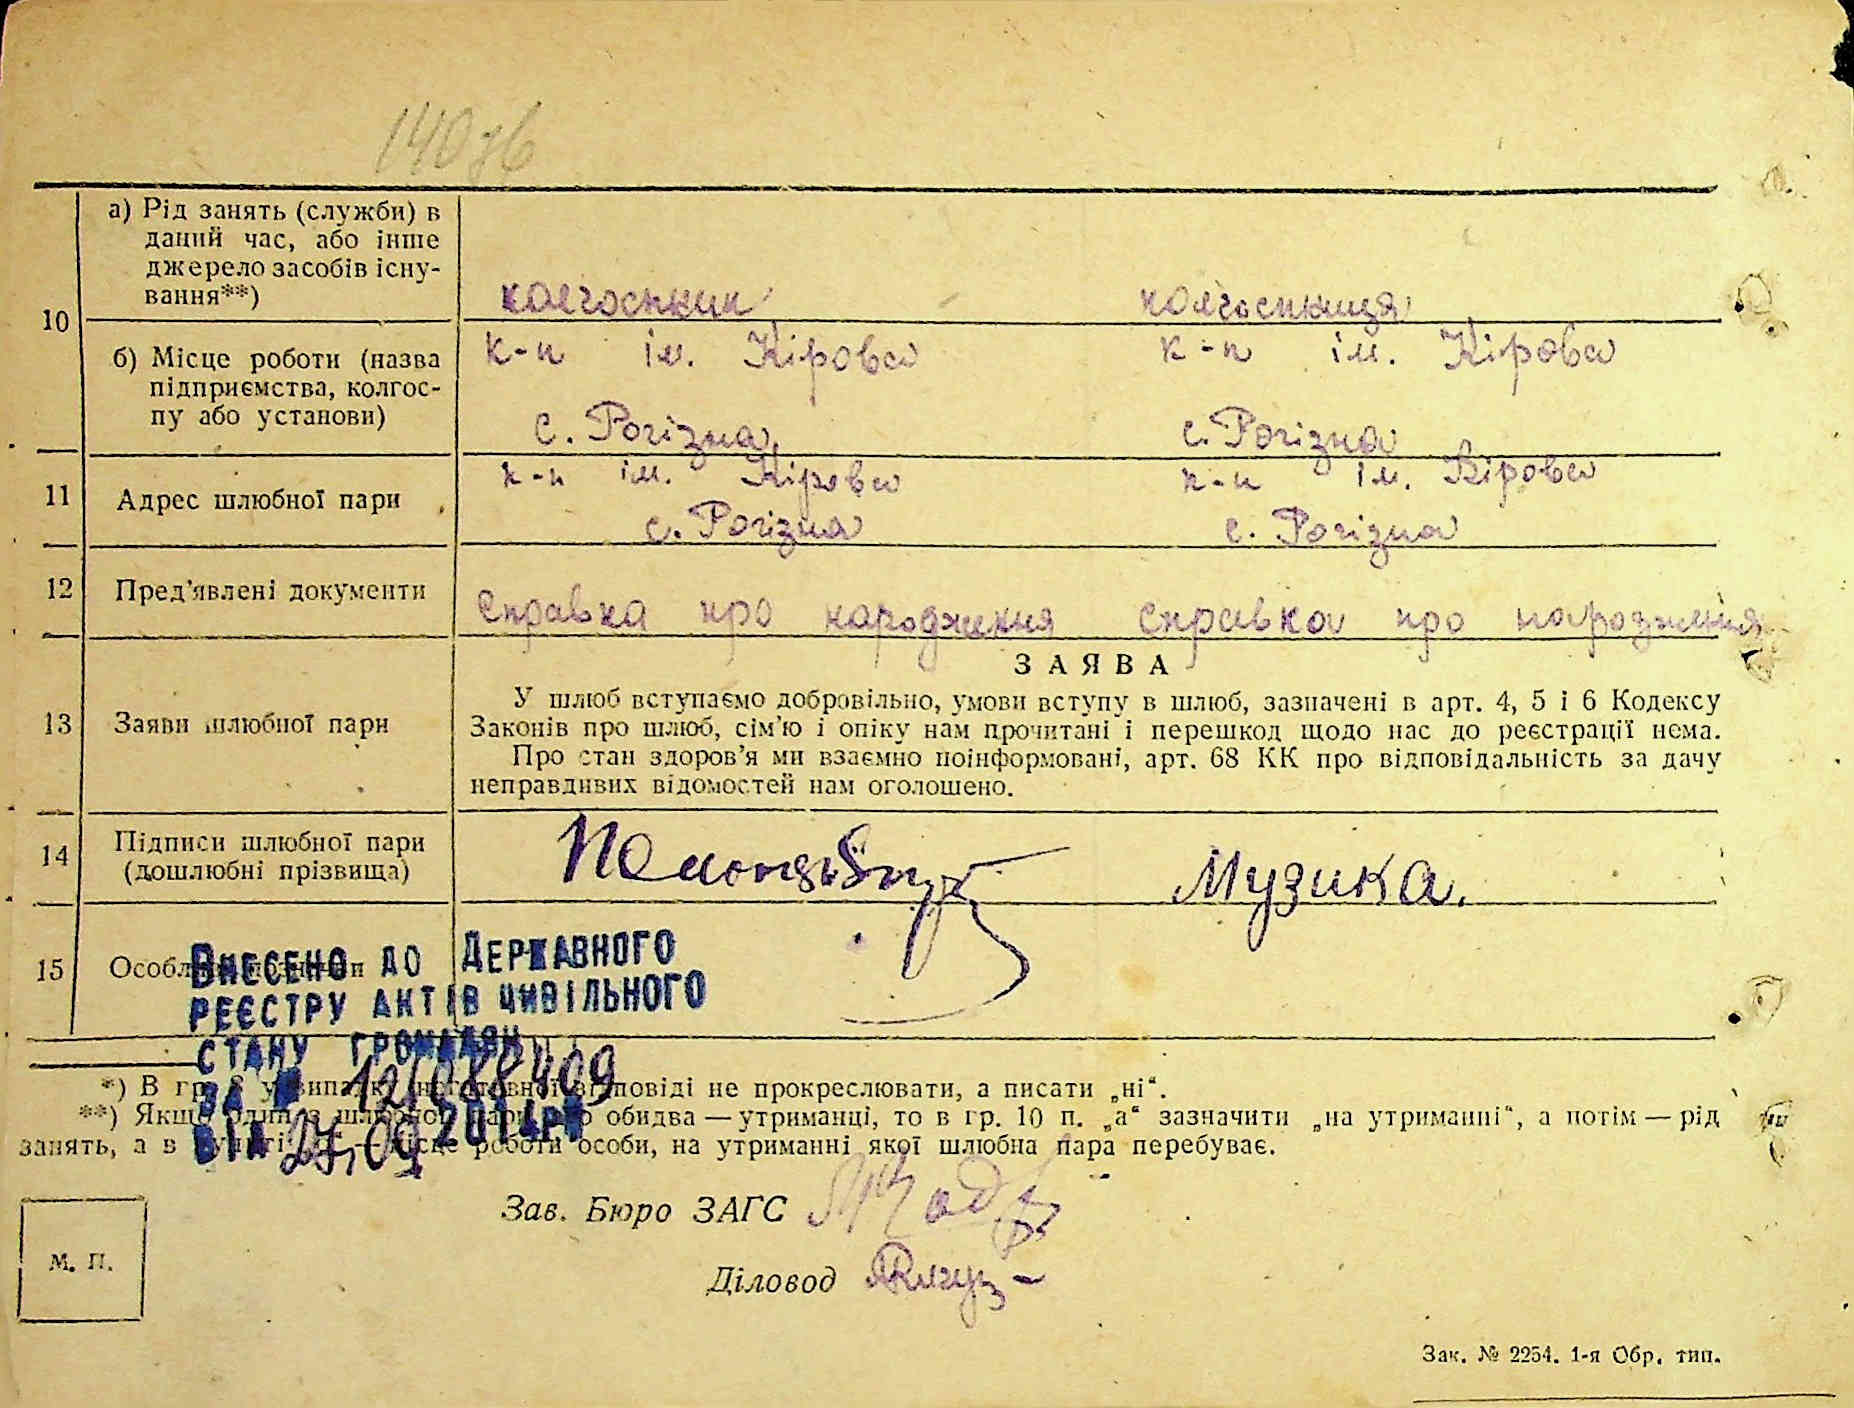 140зв
10
а) Рід занять (служби) в
даний час, або інше
джерело засобів існу-
вання**)
колгоспник колгоспниця
б) Місце роботи (назва
підприємства, колгос-
пу або установи)
к-п ім. Кірова к-п ім. Кірова
с. Рогізна с. Рогізна
11 Адрес шлюбної пари
к-п ім. Кірова к-п ім. Кірова
с. Рогізна с. Рогізна
12 Пред'явлені документи
справка про народження справка про народження
ЗАЯВА
13 Заяви шлюбної пари
У шлюб вступаємо добровільно, умови вступу в шлюб, зазначені в арт. 4, 5 і 6 Кодексу
Законів про шлюб, сім'ю і опіку нам прочитані і перешкод щодо нас до реєстрації нема.
Про стан здоров'я ми взаємно поінформовані, арт. 68 КК про відповідальність за дачу
неправдивих відомостей нам оголошено.
14 Підписи шлюбної пари
(дошлюбні прізвища)
Музика.
15
ВНЕСЕНО ДО ДЕРЖАВНОГО
РЕЄСТРУ АКТІВ ЦИВІЛЬНОГО
СТАНУ ГРОМАДЯН
ЗА №
ВІД 27.09 2014р
*) В гр. повіді не прокреслювати, а писати „ні“.
**) Якщо один з шлюбної пари обидва — утриманці, то в гр. 10 п. „а“ зазначити „на утриманні“, а потім — рід
занять, а в роботи особи, на утриманні якої шлюбна пара перебуває.
Зав. Бюро ЗАГС
Діловод
М. П.
Зак. № 2254. 1-я Обр. тип.